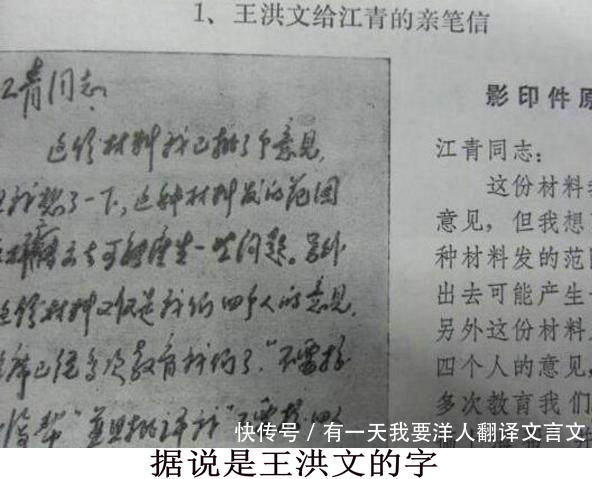 1、王洪文给江青的亲笔信
江青同志：
这份材料我已批了个意见，
但我想了一下，这种材料发的范围
出去可能产生一些问题。另外
这份材料又仅是我们四个人的意见，
主席已经多次教育我们了。"不要搞
四人帮"并且批评我"不要搞四人
影印件原
江青同志：
这份材料我
意见，但我想
种材料发的范围
出去可能产生一
另外这份材料
四个人的意见，
多次教育我们
快传号/有一天我要洋人翻译文言文
据说是王洪文的字